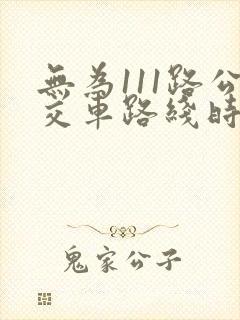 無為111路公
交車路綫時
鬼家公子